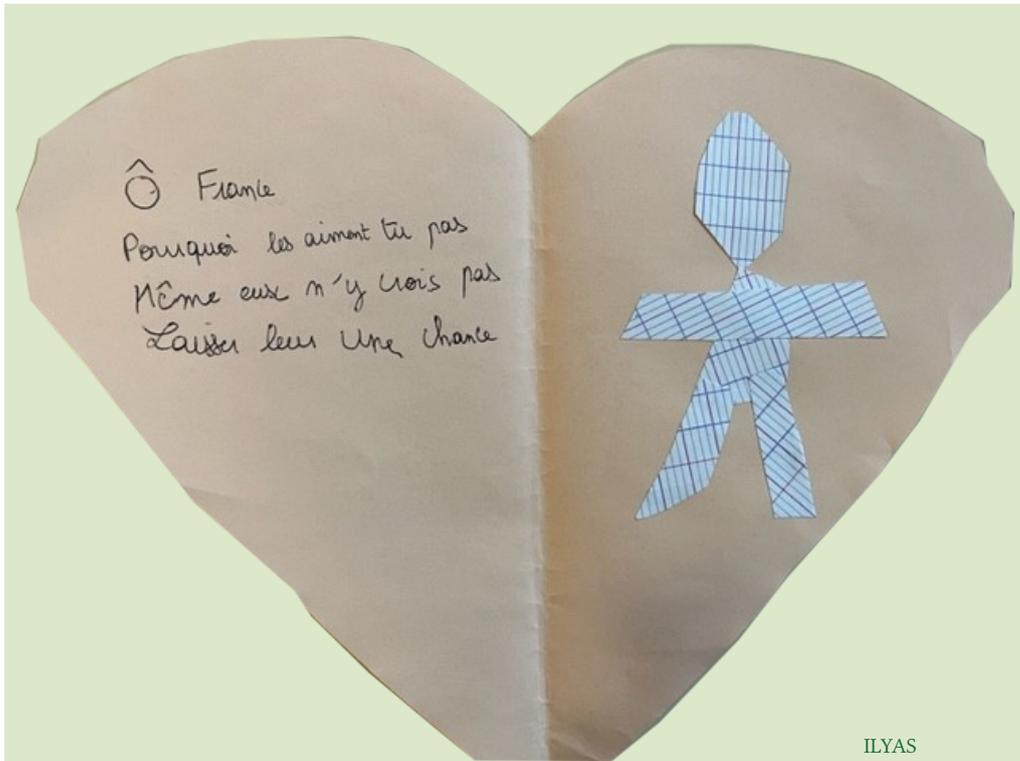 Ô France
Pourquoi les aiment tu pas
Même eux n'y crois pas
Laisser leur une chance
ILYAS